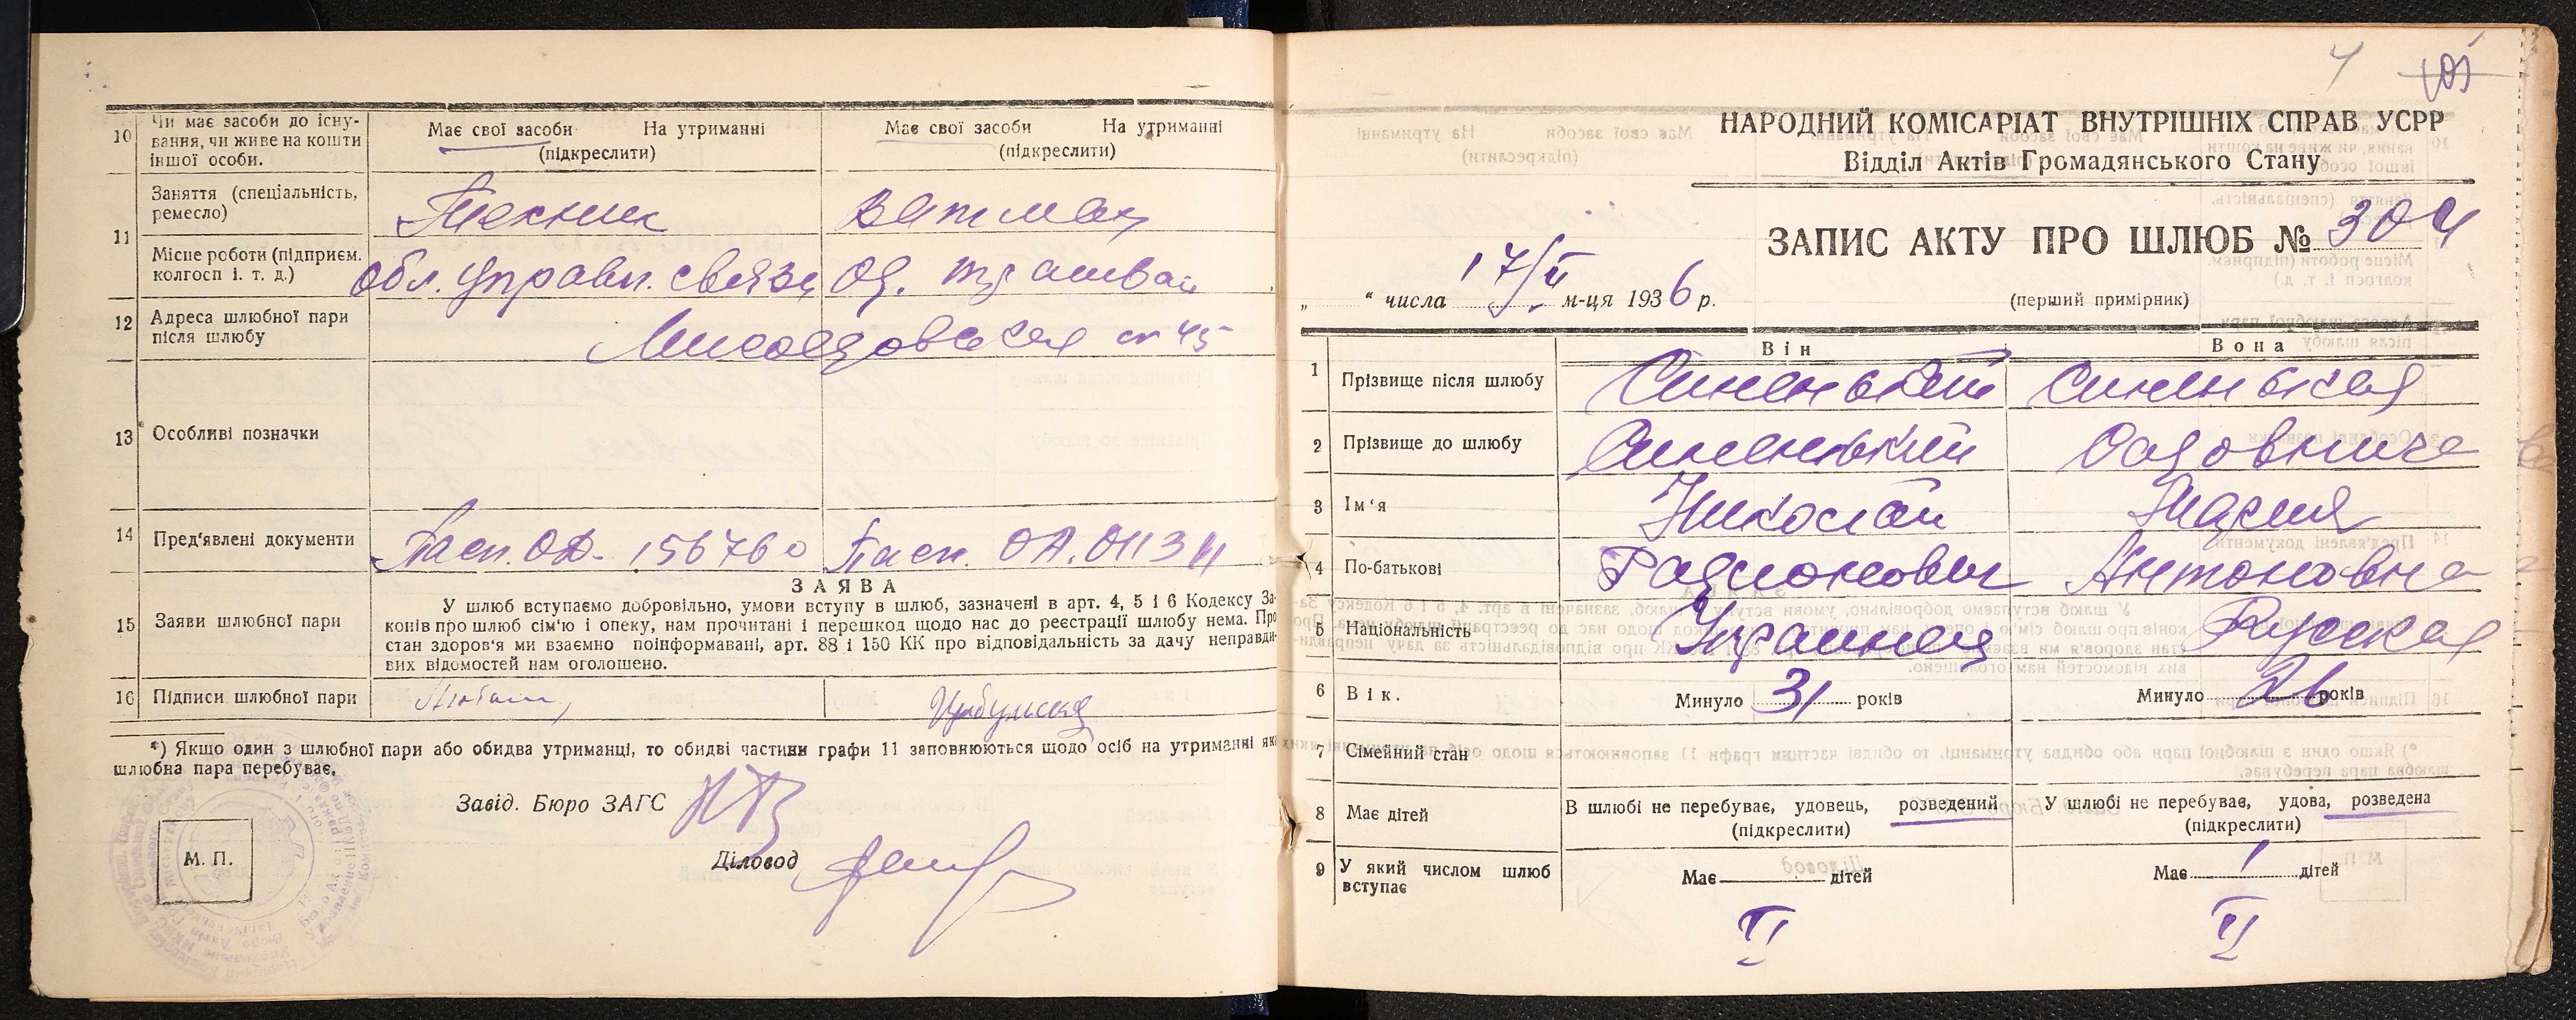 10 Чи має засоби до існування, чи живе на кошти іншої особи.
Має свої засоби На утриманні
(підкреслити)
Має свої засоби На утриманні
(підкреслити)
11 Заняття (спеціальність, ремесло)
Техник
Ватман
Місце роботи (підприєм. колгосп і. т. д.)
Обл. Управл. связи
Од. трамвай
12 Адреса шлюбної пари після шлюбу
Мясоедовская 45
13 Особливі позначки
14 Пред'явлені документи
Пасп. ОД. 156760
Пасп. ОА.
15 Заяви шлюбної пари
ЗАЯВА
У шлюб вступаємо добровільно, умови вступу в шлюб, зазначені в арт. 4, 5 і 6 Кодексу За-
конів про шлюб сім'ю і опеку, нам прочитані і перешкод щодо нас до реєстрації шлюбу нема. Про
стан здоров'я ми взаємно поінформавані, арт. 88 і 150 КК про відповідальність за дачу неправди-
вих відомостей нам оголошено.
16 Підписи шлюбної пари
*) Якщо один з шлюбної пари або обидва утриманці, то обидві частини графи 11 заповнюються щодо осіб на утриманні як
шлюбна пара перебуває.
Завід. Бюро ЗАГС
Діловод
М. П.
4
НАРОДНИЙ КОМІСАРІАТ ВНУТРІШНІХ СПРАВ УСРР
Відділ Актів Громадянського Стану
ЗАПИС АКТУ ПРО ШЛЮБ № 304
„ “ числа 17/II м-ця 1936 р.
(перший примірник)
Він Вона
1 Прізвище після шлюбу Синенький Синенькая
2 Прізвище до шлюбу Синенький Садовниче
3 Ім'я Николай Мария
4 По-батькові Радионович Антоновна
5 Національність Украинец Русская
6 Вік. Минуло 31 років Минуло 26 років
7 Сімейний стан
8 Має дітей
В шлюбі не перебуває, удовець, розведений
(підкреслити)
У шлюбі не перебуває, удова, розведена
(підкреслити)
9 У який числом шлюб вступає
Має дітей
Має 1 дітей
II II